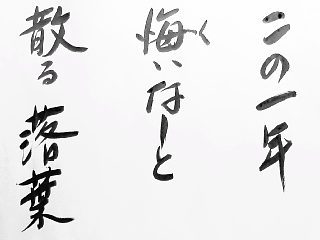 この一年
く
悔いなしと
散る落葉